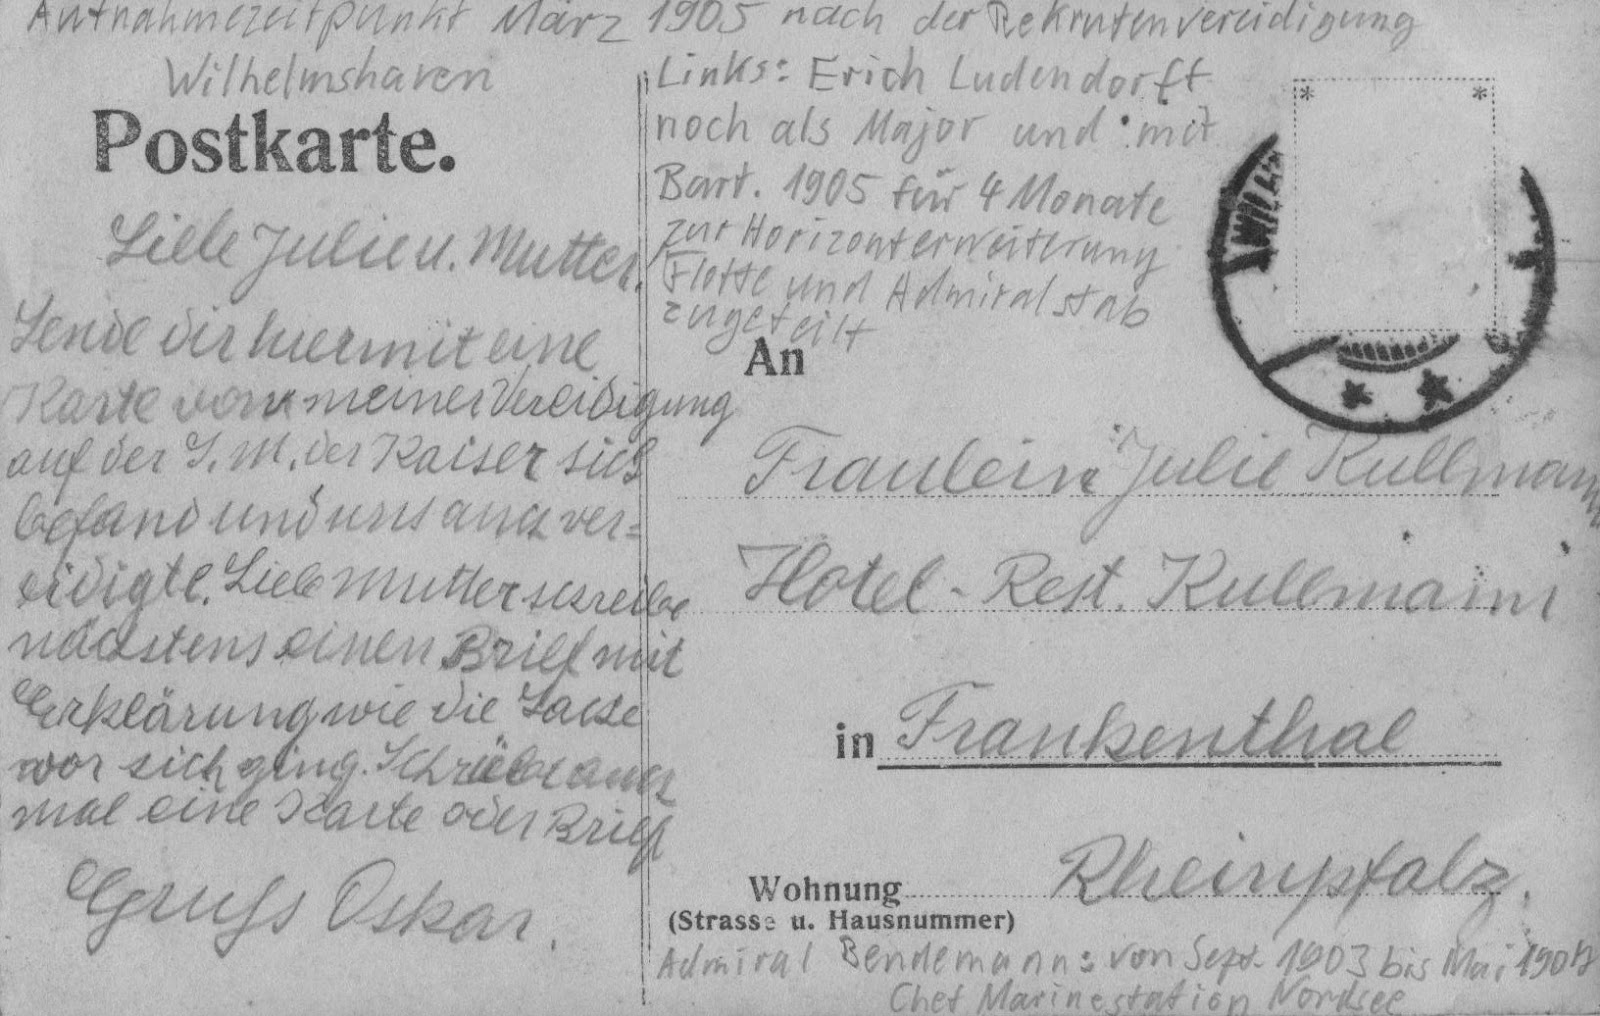 Aufnahmezeitpunkt März 1905 nach der Rekrutenvereidigung
Wilhelmshaven
Postkarte.
Liebe Julie u. Mutter.
Sende dir hiermit eine
Karte von meiner Vereidigung
auf der S. M. der Kaiser sich
befand und uns auch ver=
eidigte. Liebe Mutter schreibe
nächstens einen Brief mit
Erklärung wie die Sache
vor sich ging. Schreibe auch
mal eine Karte oder Brief
Gruss Oskar.
Links: Erich Ludendorff
noch als Major und mit
Bart. 1905 für 4 Monate
zur Horizonterweiterung
Flotte und Admiralstab
zugeteilt
An
Fraulein Julie Kullmann
Hotel-Rest. Kullmann
in Frankenthal
Wohnung Rheinpfalz.
(Strasse u. Hausnummer)
Admiral Bendemann: von Sept. 1903 bis Mai
Chef Marinestation Nordsee